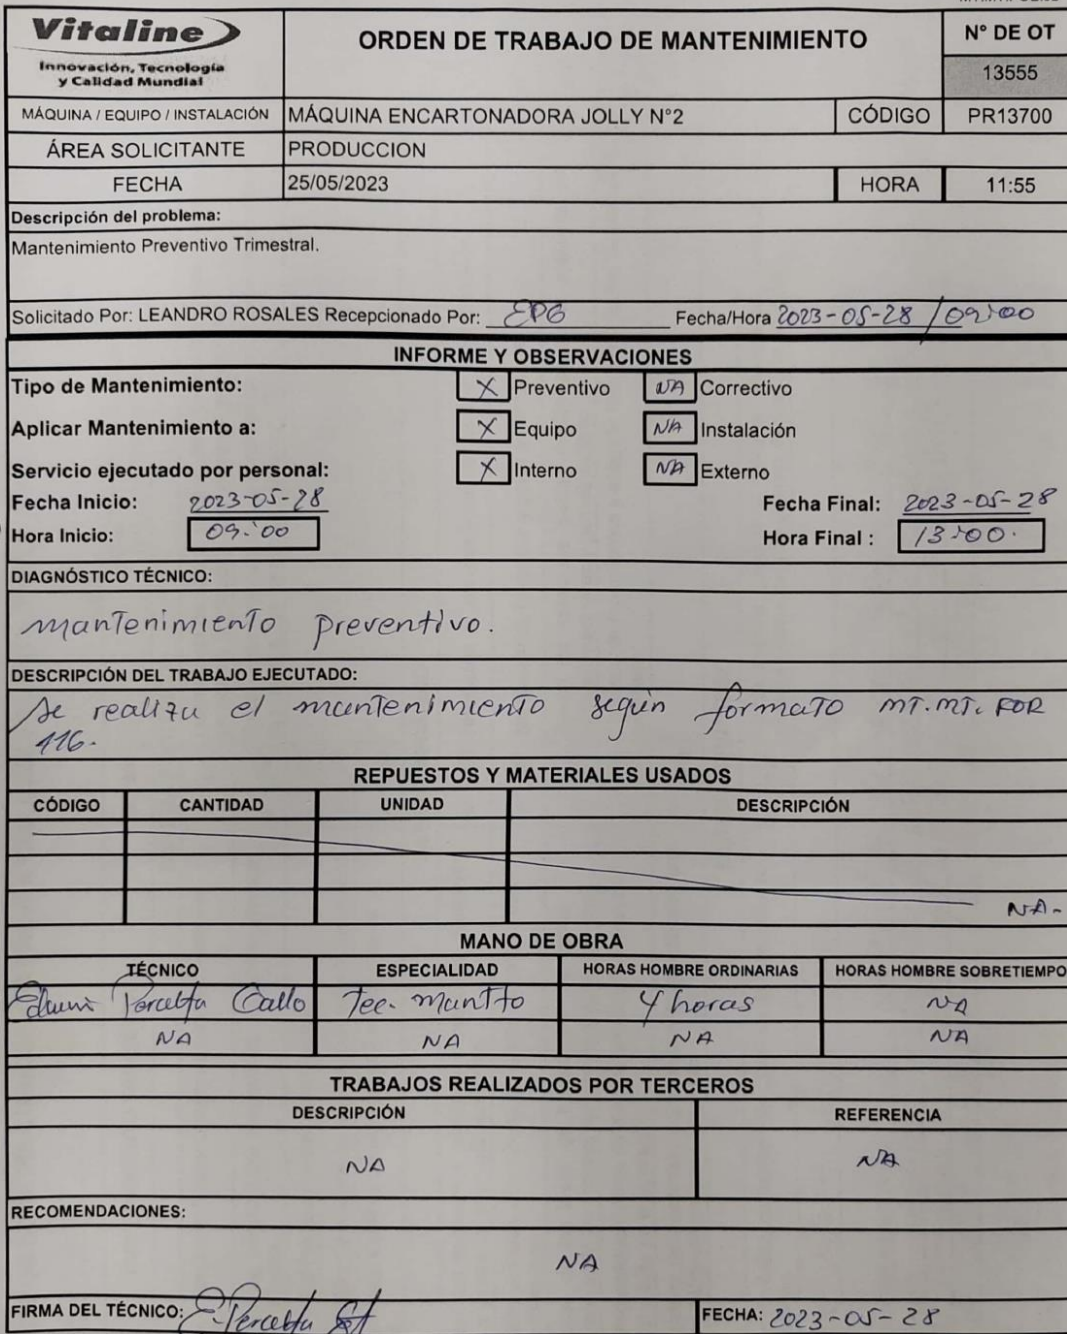 Vitaline
Innovación, Tecnología
y Calidad Mundial
ORDEN DE TRABAJO DE MANTENIMIENTO
N° DE OT
13555
MÁQUINA / EQUIPO / INSTALACIÓN MÁQUINA ENCARTONADORA JOLLY N°2 CÓDIGO PR13700
ÁREA SOLICITANTE PRODUCCION
FECHA 25/05/2023 HORA 11:55
Descripción del problema:
Mantenimiento Preventivo Trimestral.
Solicitado Por: LEANDRO ROSALES Recepcionado Por: EPG Fecha/Hora 2023-05-28 / 09:00
INFORME Y OBSERVACIONES
Tipo de Mantenimiento: X Preventivo NA Correctivo
Aplicar Mantenimiento a: X Equipo NA Instalación
Servicio ejecutado por personal: X Interno NA Externo
Fecha Inicio: 2023-05-28 Fecha Final: 2023-05-28
Hora Inicio: 09:00 Hora Final : 13:00.
DIAGNÓSTICO TÉCNICO:
mantenimiento preventivo.
DESCRIPCIÓN DEL TRABAJO EJECUTADO:
Se realiza el mantenimiento según formato MT.MT. FOR
116.
REPUESTOS Y MATERIALES USADOS
CÓDIGO CANTIDAD UNIDAD DESCRIPCIÓN
NA-
MANO DE OBRA
TÉCNICO ESPECIALIDAD HORAS HOMBRE ORDINARIAS HORAS HOMBRE SOBRETIEMPO
Gallo Tec. Mantto 4 horas NA
NA NA NA NA
TRABAJOS REALIZADOS POR TERCEROS
DESCRIPCIÓN REFERENCIA
NA NA
RECOMENDACIONES:
NA
FIRMA DEL TÉCNICO: FECHA: 2023-05-28